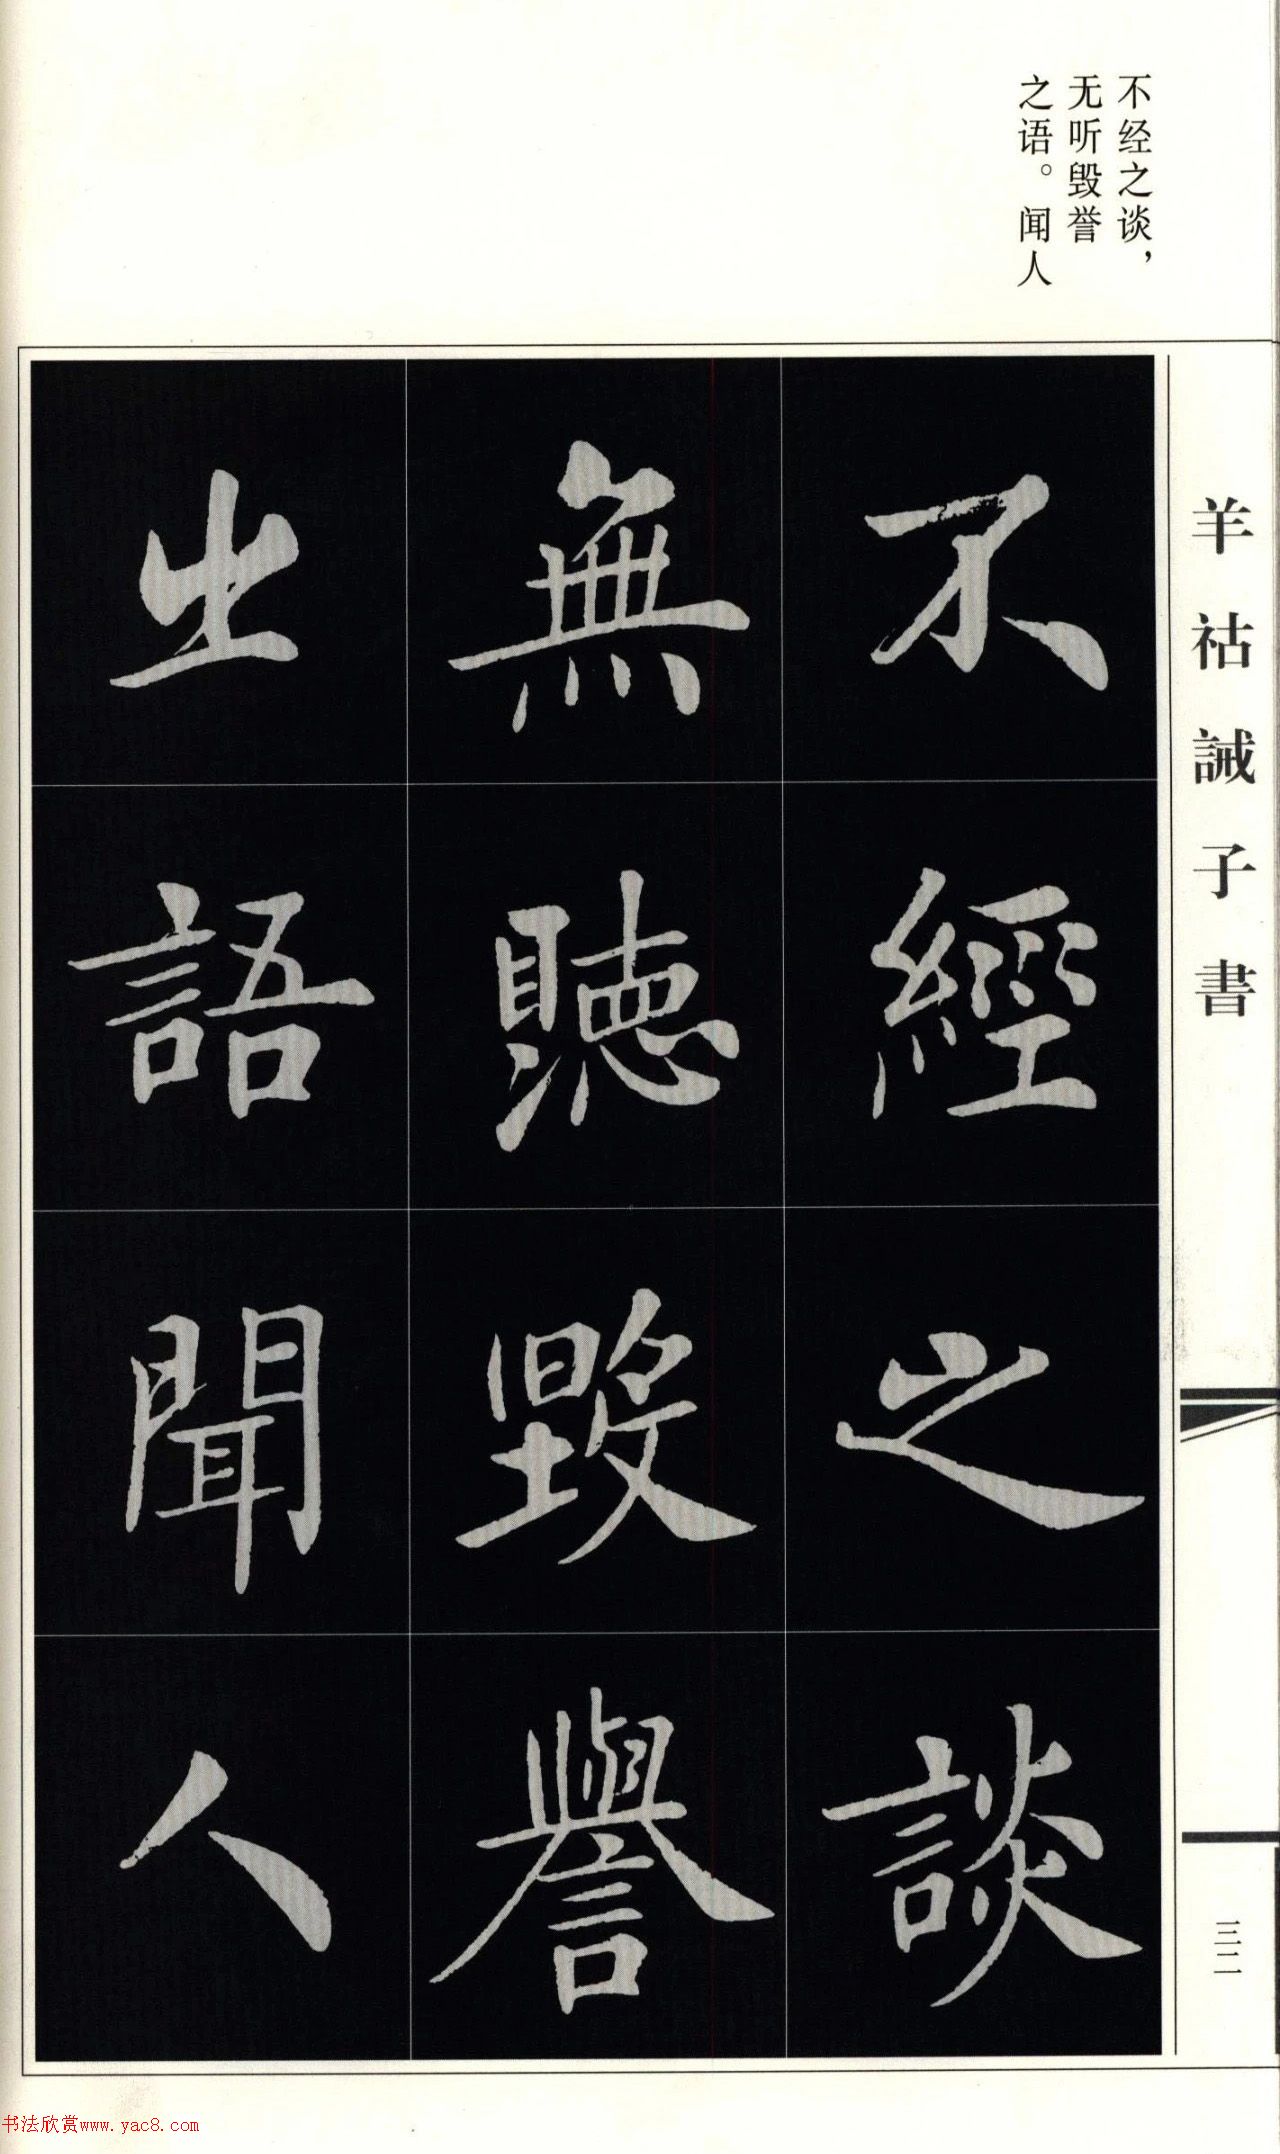 不经之谈，
无听毁誉
之语。闻人
羊祜誡子書
不經之談
無聽毀譽
之語聞人
三二
书法欣赏www.yac8.com